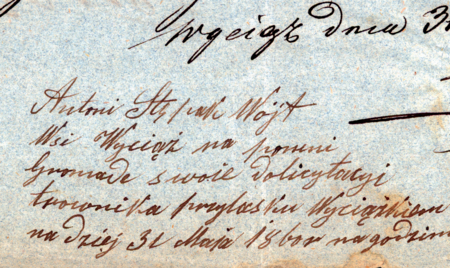 Wyciąż dnia 3
Antoni Stępak Wójt
Wsi Wyciąż na
Gromade swoie dolicytacyi
przylasku Wyciąskiem
na dziej 31 Maja 1860r na godzin